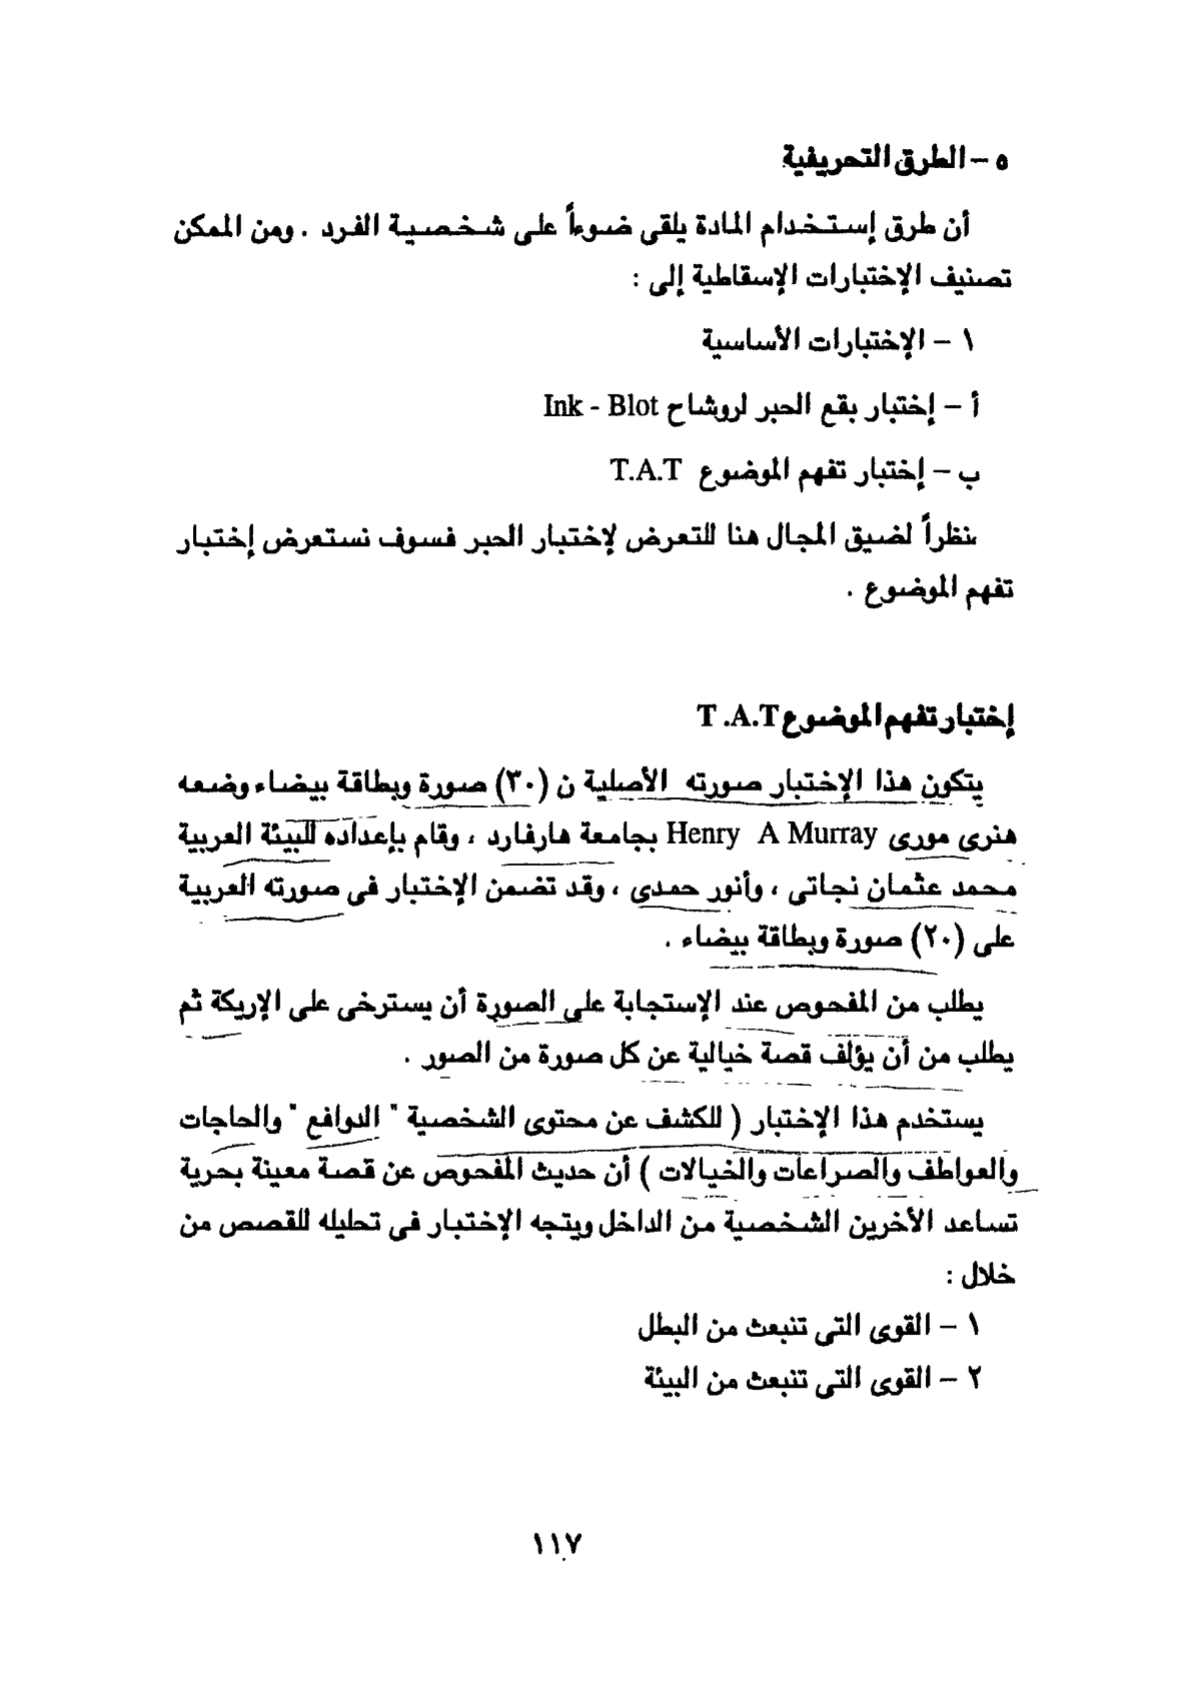 ٥ – الطرق التحريفية
أن طرق إستخدام المادة يلقى ضوءاً على شخصية الفرد . ومن الممكن
تصنيف الإختبارات الإسقاطية إلى :
١ – الإختبارات الأساسية
أ – إختبار بقع الحبر لروشاح Ink - Blot
ب – إختبار تفهم الموضوع T.A.T
نظراً لضيق المجال هنا للتعرض لإختبار الحبر فسوف نستعرض إختبار
تفهم الموضوع .
إختبار تفهم الموضوع T .A.T
يتكون هذا الإختبار صورته الأصلية ن (٣٠) صورة وبطاقة بيضاء وضعه
هنرى مورى Henry A Murray بجامعة هارفارد ، وقام بإعداده للبيئة العربية
محمد عثمان نجاتى ، وأنور حمدى ، وقد تضمن الإختبار فى صورته العربية
على (٢٠) صورة وبطاقة بيضاء .
يطلب من المفحوص عند الإستجابة على الصورة أن يسترخى على الإريكة ثم
يطلب من أن يؤلف قصة خيالية عن كل صورة من الصور .
يستخدم هذا الإختبار ( للكشف عن محتوى الشخصية " الدوافع " والحاجات
والعواطف والصراعات والخيالات ) أن حديث المفحوص عن قصة معينة بحرية
تساعد الأخرين الشخصية من الداخل ويتجه الإختبار فى تحليله للقصص من
خلال :
١ – القوى التى تنبعث من البطل
٢ – القوى التى تنبعث من البيئة
١١٧